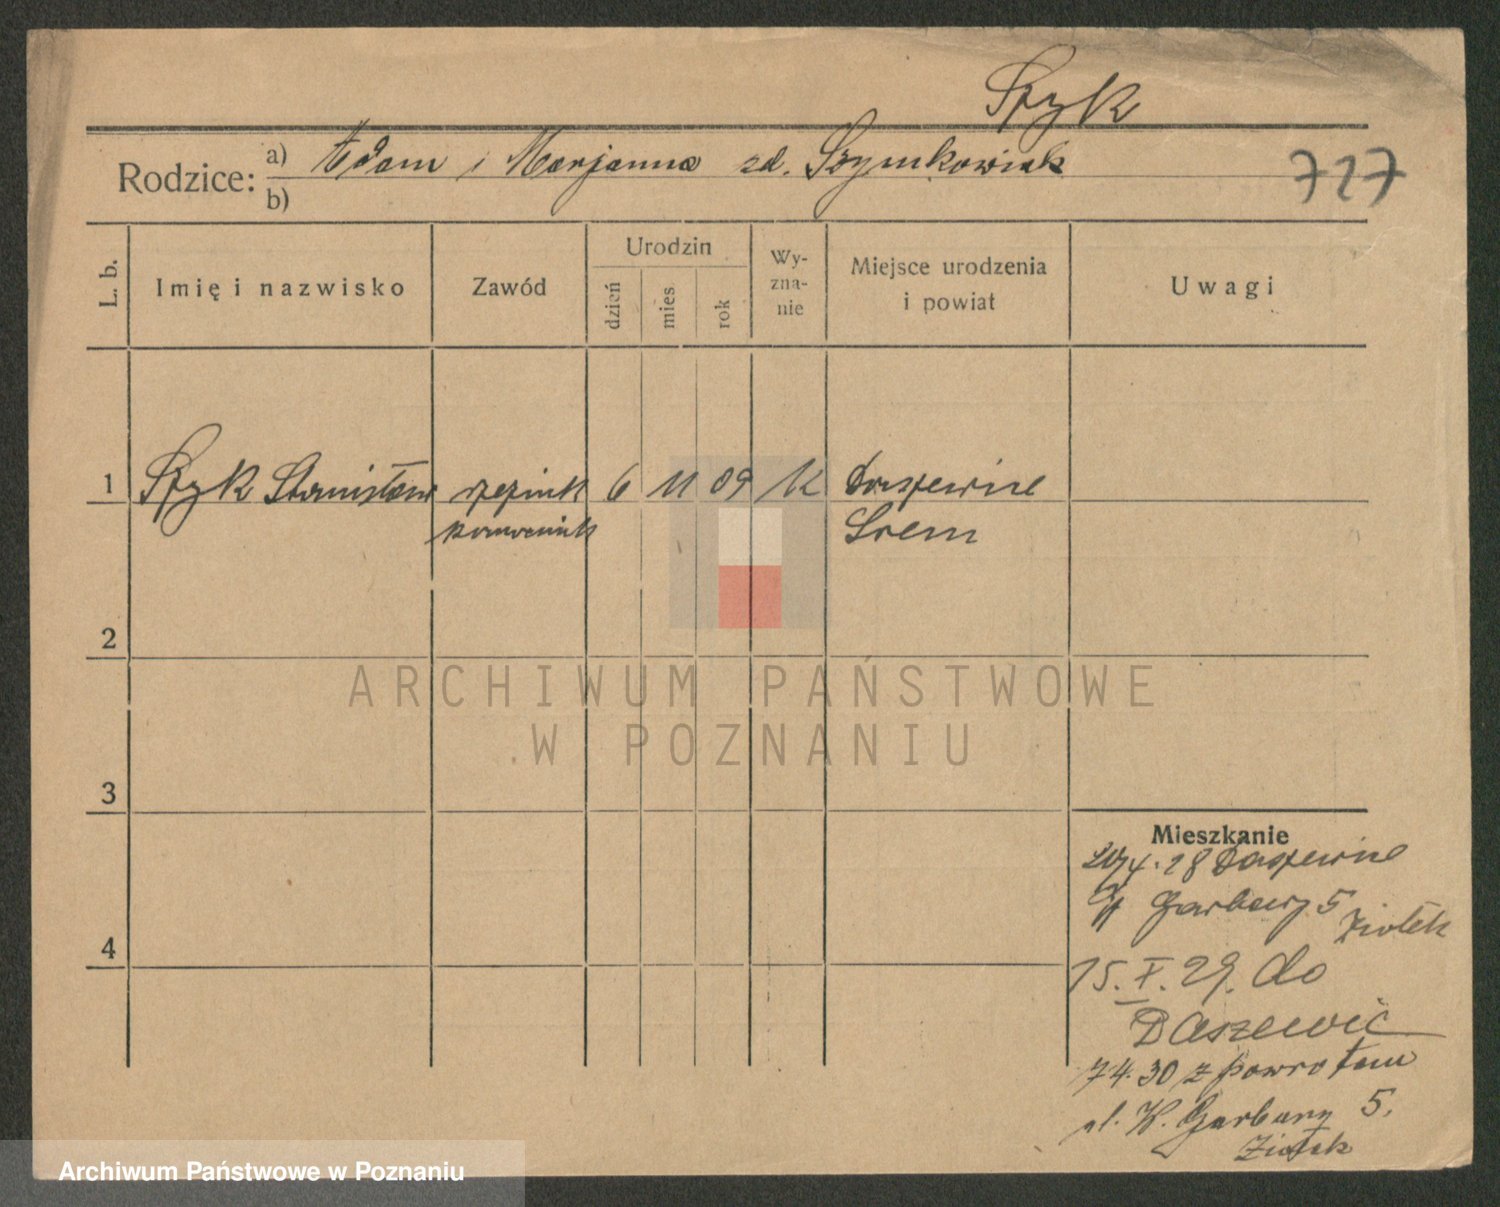 Szyk
Rodzice: a) Adam i Marjanna zd. Szymkowiak
b)
727
L. b. Imię i nazwisko Zawód Urodzin dzień mies rok Wyznanie Miejsce urodzenia i powiat Uwagi
1 Szyk Stanisław rzeźnik 6 11 09 K Daszewice
Śrem
2
ARCHIWUM PAŃSTWOWE
W POZNANIU
3
Mieszkanie
28 Daszewice
Garbary 5
Ziołek
4
15. X. 29. do
Daszewic
7 4. 30 z powrotem
ul. W. Garbary 5.
Ziołek
Archiwum Państwowe w Poznaniu